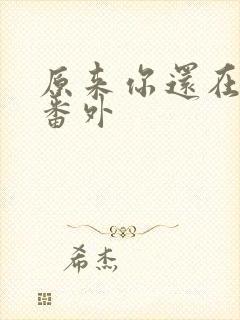 原来你還在
番外
希杰